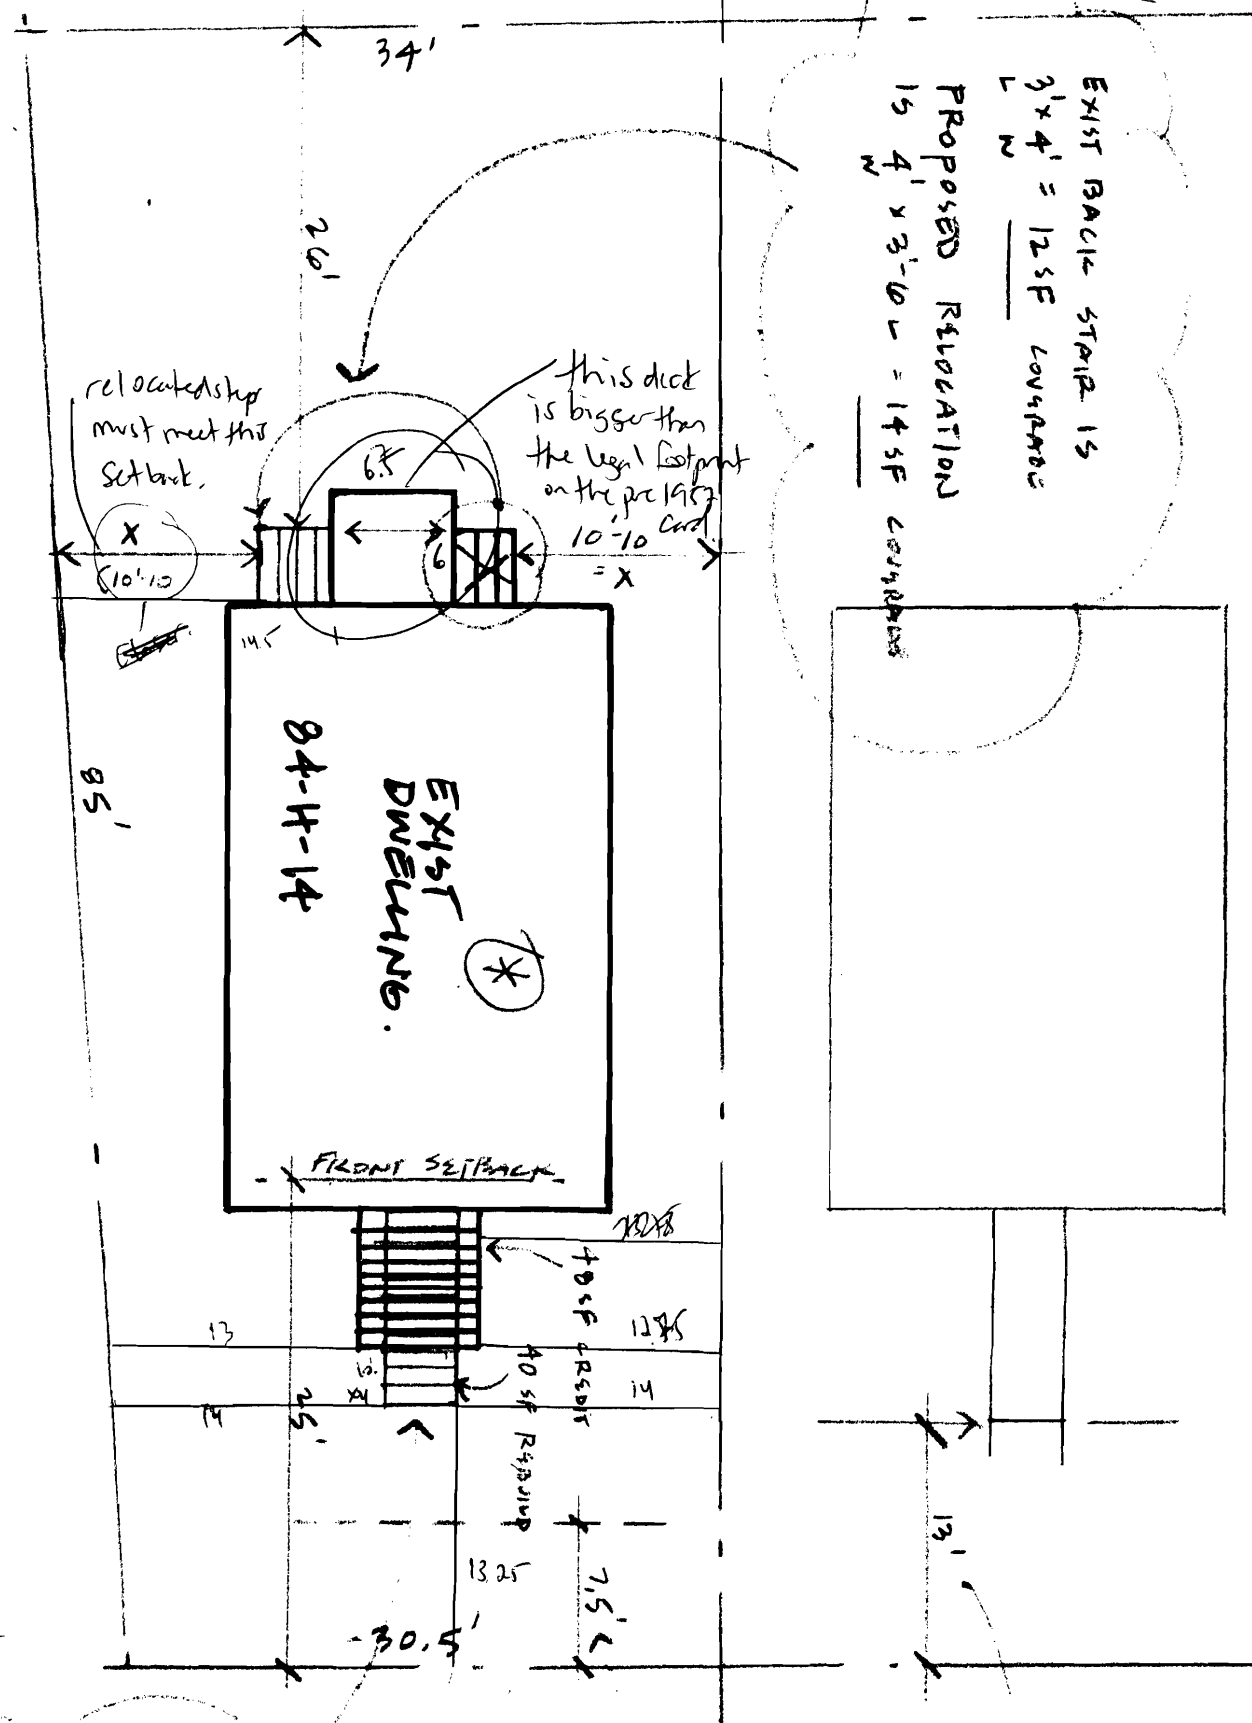 34'
EXIST BACK STAIR IS
3' x 4' = 12 SF LOVGRADE
L W
PROPOSED RELOCATION
IS 4' x 3'-6 L = 14 SF
W
26'
relocated step
must meet this
setback.
this deck
is bigger than
the legal footprint
on the pre 1957
card
X
10'-10
6.5
6
10'-10
= X
14.5
85'
84-H-14
EXIST
DWELLING.
*
FRONT SETBACK
48 SF CREDIT
40 SF REBUILD
13
14
14
25'
13'
13.25
7.5'
30.5'